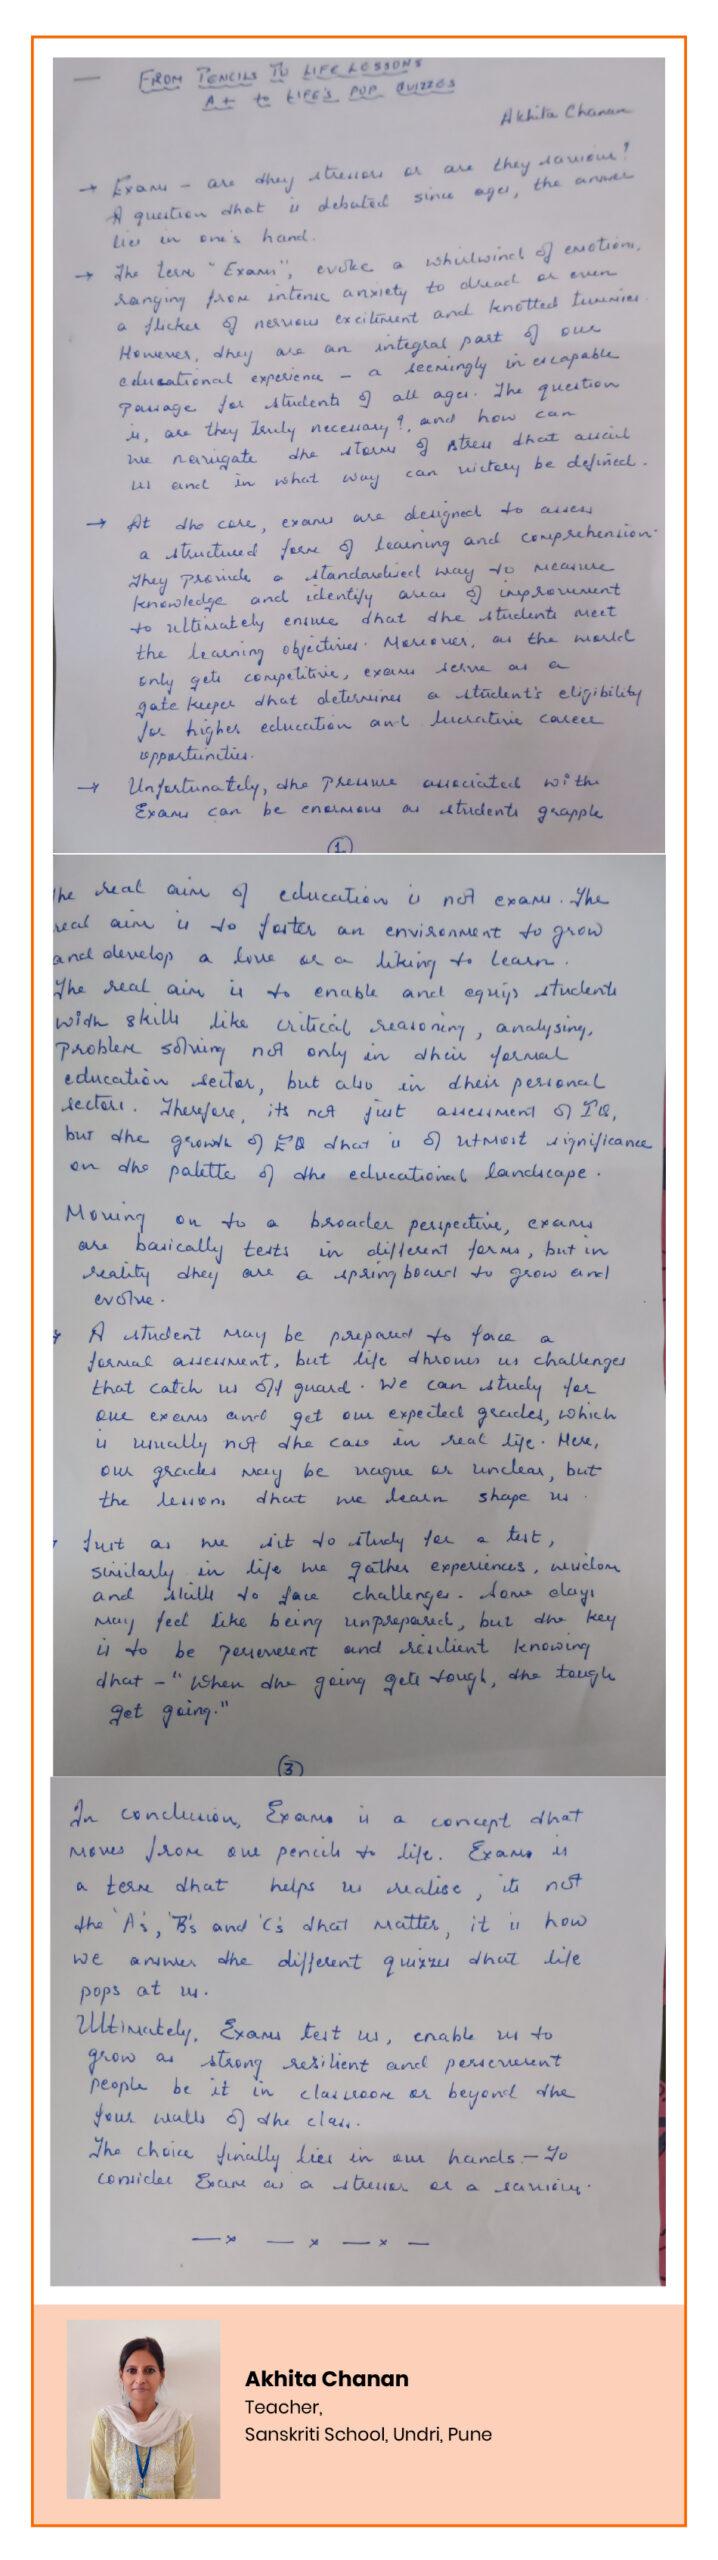 FROM PENCILS TO LIFE LESSONS
A+ to LIFE'S POP QUIZZES
Akhita Chanan
→ Exams - are they stressors or are they saviour?
A question that is debated since ages, the answer
lies in one's hand.
→ The term "Exams", evoke a whirlwind of emotions,
ranging from intense anxiety to dread or even
a flicker of nervous excitement and knotted tummies.
However, they are an integral part of our
educational experience - a seemingly inescapable
passage for students of all ages. The question
is, are they truly necessary?, and how can
we navigate the storms of stress that assail
us and in what way can victory be defined.
→ At the core, exams are designed to assess
a structured form of learning and comprehension.
They provide a standardised way to measure
knowledge and identify areas of improvement
to ultimately ensure that the students meet
the learning objectives. Moreover, as the world
only gets competitive, exams serve as a
gate keeper that determines a student's eligibility
for higher education and lucrative career
opportunities.
→ Unfortunately, the pressure associated with
Exams can be enormous as students grapple
1
the real aim of education is not exams. The
real aim is to foster an environment to grow
and develop a love or a liking to learn.
The real aim is to enable and equip students
with skills like critical reasoning, analysing,
problem solving not only in their formal
education sector, but also in their personal
sectors. Therefore, its not just assessment of IQ,
but the growth of EQ that is of utmost significance
on the palette of the educational landscape.
Moving on to a broader perspective, exams
are basically tests in different forms, but in
reality they are a springboard to grow and
evolve.
A student may be prepared to face a
formal assessment, but life throws us challenges
that catch us off guard. We can study for
our exams and get our expected grades, which
is usually not the case in real life. Here,
our grades may be vague or unclear, but
the lessons that we learn shape us.
Just as we sit to study for a test,
similarly in life we gather experiences, wisdom
and skills to face challenges. Some days
may feel like being unprepared, but the key
is to be perseverent and resilient knowing
that - "When the going gets tough, the tough
get going."
3
In conclusion, Exams is a concept that
moves from our pencils to life. Exams is
a term that helps us realise, its not
the 'A's, 'B's and 'C's that matter, it is how
we answer the different quizzes that life
pops at us.
Ultimately, Exams test us, enable us to
grow as strong resilient and perseverent
people be it in classroom or beyond the
four walls of the class.
The choice finally lies in our hands - To
consider Exam as a stressor or a saviour.
Akhita Chanan
Teacher,
Sanskriti School, Undri, Pune